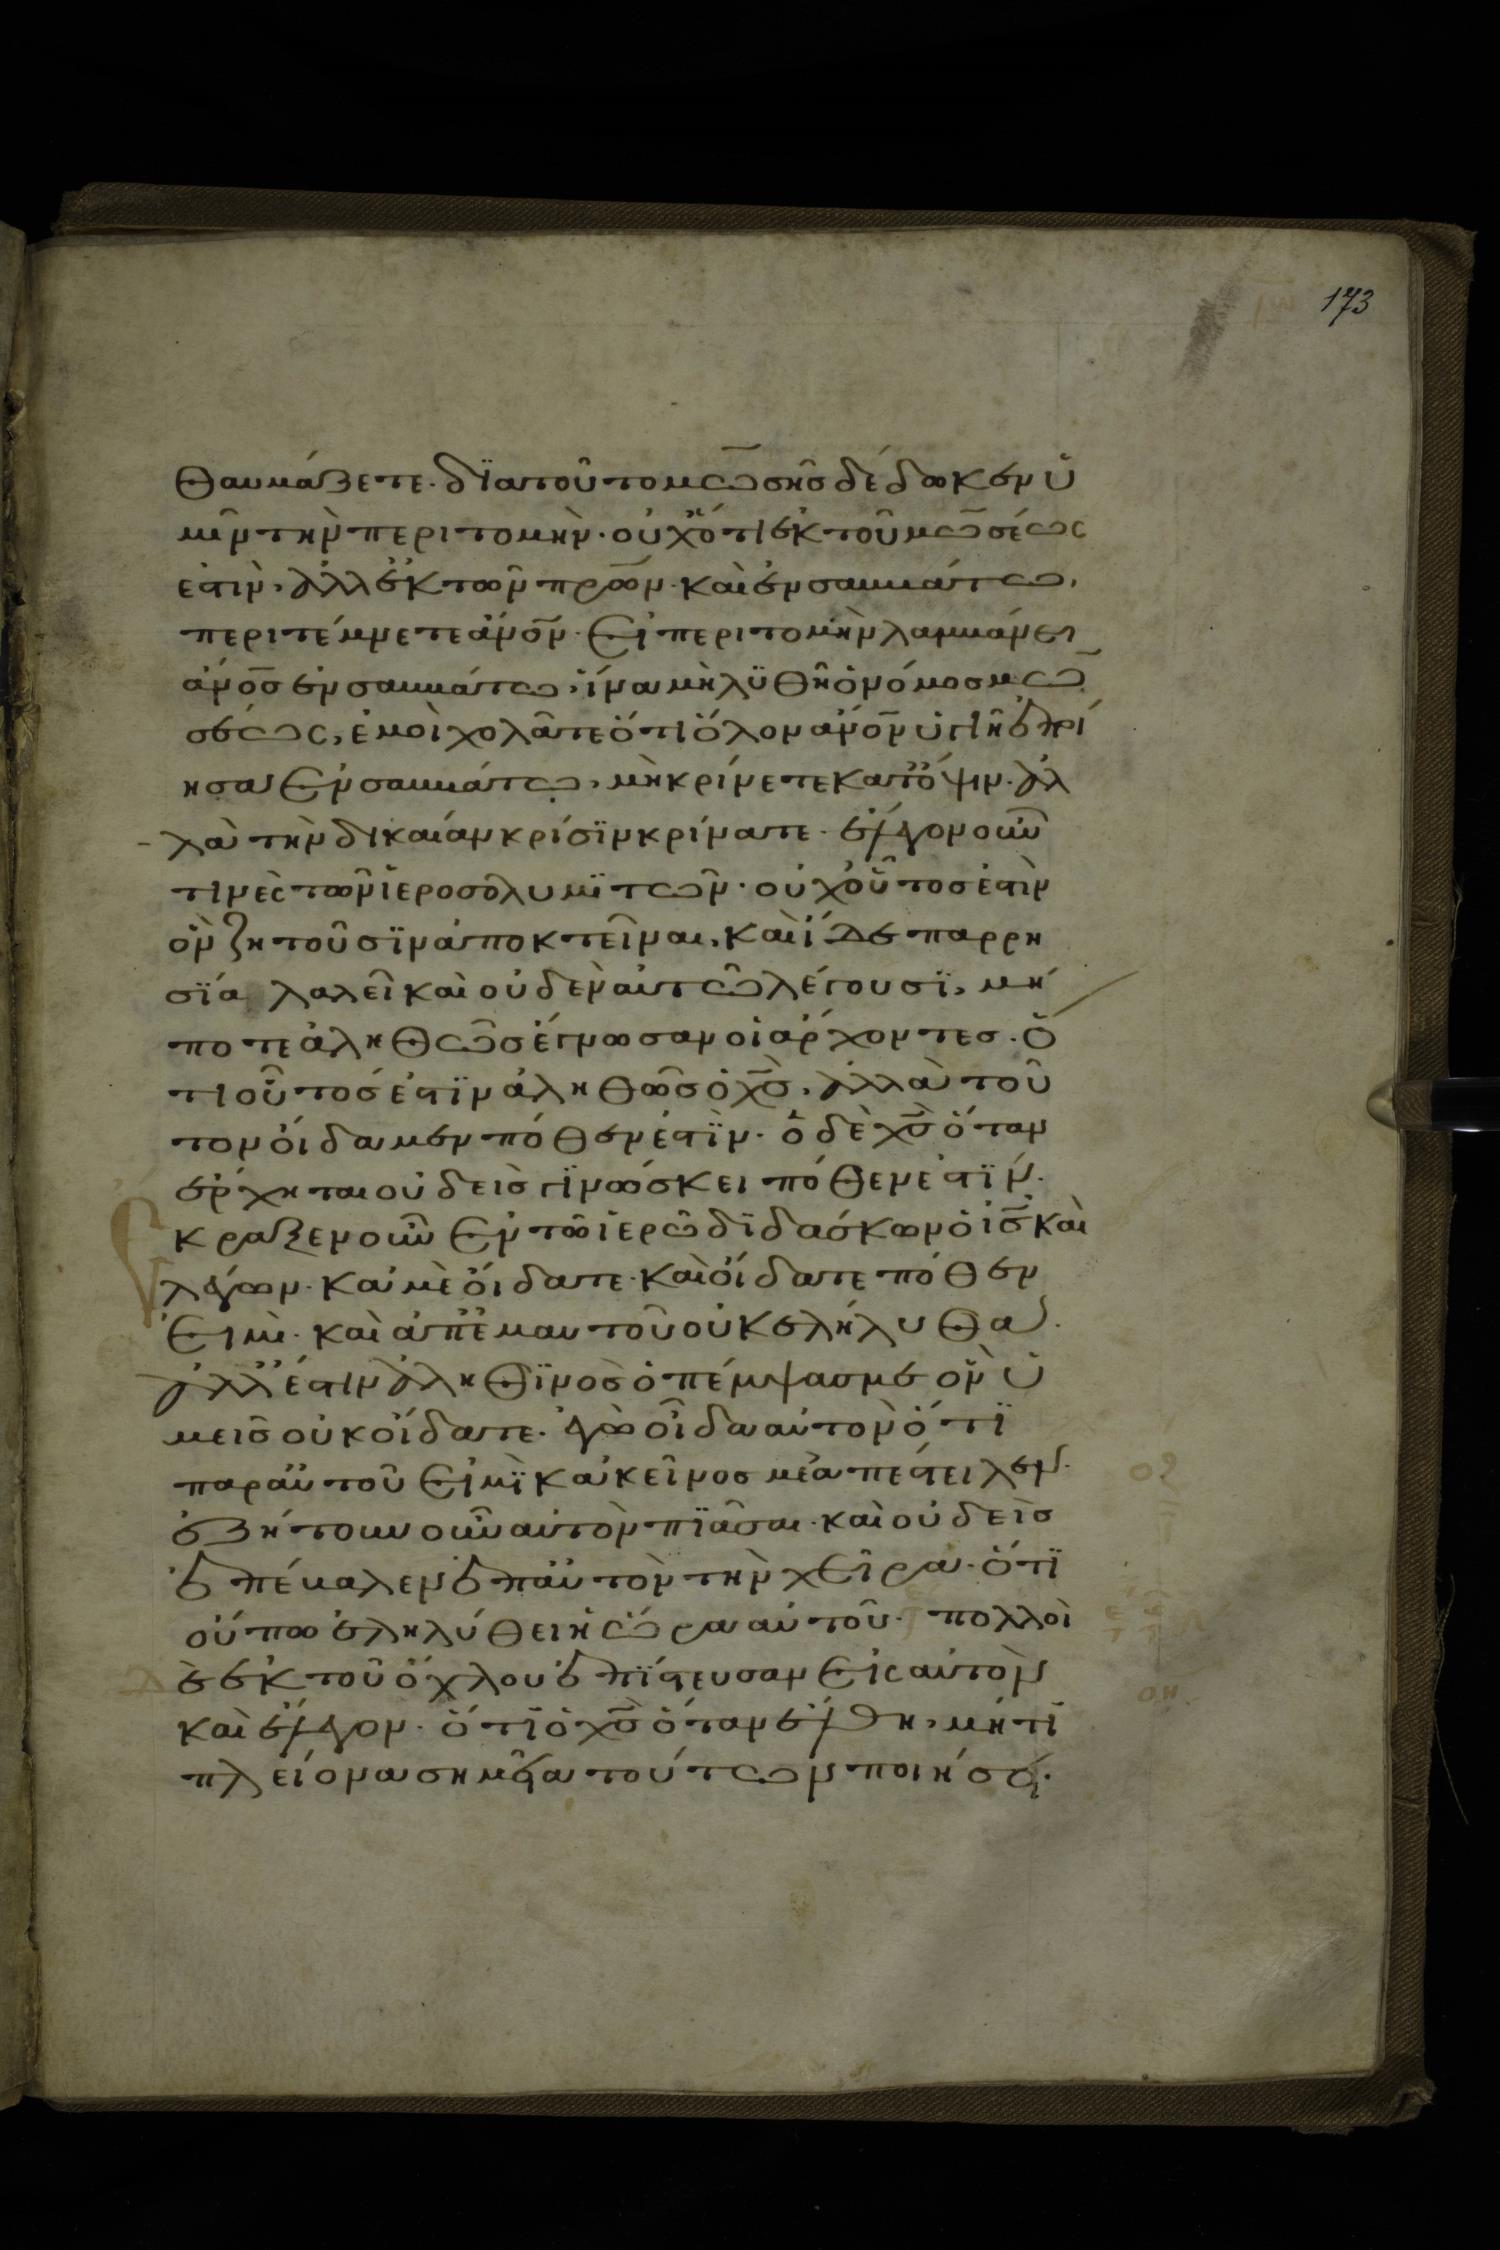 173
θαυμάζετε· δϊατοῦτο μω̅σῆς δέδωκεν ὑ
μῖν τὴν περιτομὴν· οὐχ' ὅτι ἐκ τοῦ μω̅σέως
ἐστιν, ἀλλ' ἐκ τῶν πρ̅ων· καὶ ἐν σαββάτω,
περιτέμνετε ἄν̅ον· Εἰ περιτομὴν λαμβάνει
ἄν̅οσ ἐν σαββάτω, ἵνα μὴ λϋθῆ ὁ νόμοσ μω̅
σέως, ἐμοὶ χολᾶτε ὅτι ὅλον ἄν̅ον ὑγιῆ ἐποί
ησα ἐν σαββάτω, μὴ κρίνετε κατ' ὄψιν· ἀλ
λὰ τὴν δικαίαν κρίσϊν κρίνατε· ἔλεγον οὖν
τινὲς τῶν ἱεροσολυμϊτῶν· οὐχ' οὗτοσ ἐστὶν
ὃν ζητοῦσϊν ἀποκτεῖναι, καὶ ἴδε παρρη
σϊα λαλεῖ καὶ οὐδὲν αὐτῶ λέγουσϊ, μή
ποτε ἀληθῶσ ἔγνωσαν οἱ ἄρχοντεσ· ὅ
τι οὗτοσ ἐστϊν ἀληθῶσ ὁ χ̅σ, ἀλλὰ τοῦ
τον οἴδαμεν πόθεν ἐστϊν· ὁ δὲ χ̅σ ὅταν
ἔρχηται οὐδεὶσ γϊνώσκει πόθεν ἐστϊν·
κραξεν οὖν ἐν τῶ ἱερῶ δϊδάσκων ὁ ι̅σ καὶ
λέγων· κἀμὲ οἴδατε· καὶ οἴδατε πόθεν
εἰμὶ· καὶ ἀπ' ἐμαυτοῦ οὐκ ἐλήλυθα·
ἀλλ' ἔστιν ἀληθϊνὸσ ὁ πέμψασ με ὃν ὑ
μεῖσ οὐκ οἴδατε· ἐγὼ οἶδα αὐτὸν ὅτϊ
παρ' αὐτοῦ εἰμϊ κἀκεῖνοσ μὲ ἀπέστειλεν·
ἐζήτουν οὖν αὐτὸν πϊᾶσαι· καὶ οὐδεὶσ
ἐπέβαλεν ἐπ' αὐτὸν τὴν χεῖρα· ὅτϊ
οὔπω ἐληλύθει ἡ ὥρα αὐτοῦ· πολλοὶ
δὲ ἐκ τοῦ ὄχλου ἐπϊστευσαν εἰς αὐτὸν
καὶ ἔλεγον· ὅτϊ ὁ χ̅σ ὅταν ἔλθη, μήτϊ
πλείονα σημεῖα τούτων ποιήσει·
οη